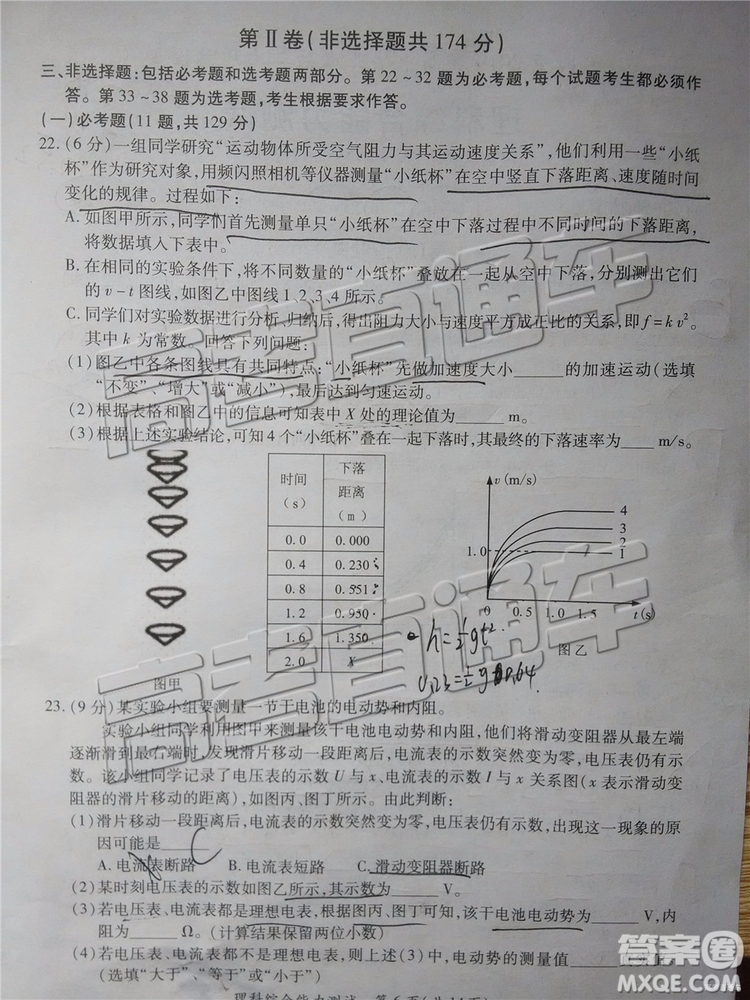 第Ⅱ卷(非选择题共174分)
三、非选择题:包括必考题和选考题两部分。第22~32题为必考题,每个试题考生都必须作
答。第33~38题为选考题,考生根据要求作答。
(一)必考题(11题,共129分)
22.(6分)一组同学研究“运动物体所受空气阻力与其运动速度关系”,他们利用一些“小纸
杯”作为研究对象,用频闪照相机等仪器测量“小纸杯”在空中竖直下落距离、速度随时间
变化的规律。过程如下:
A.如图甲所示,同学们首先测量单只“小纸杯”在空中下落过程中不同时间的下落距离,
将数据填入下表中。
B.在相同的实验条件下,将不同数量的“小纸杯”叠放在一起从空中下落,分别测出它们
的v-t图线,如图乙中图线1、2、3、4所示。
C.同学们对实验数据进行分析、归纳后,得出阻力大小与速度平方成正比的关系,即f=kv².
其中k为常数。回答下列问题:
(1)图乙中各条图线具有共同特点:“小纸杯”先做加速度大小____的加速运动(选填
“不变”、“增大”或“减小”),最后达到匀速运动。
(2)根据表格和图乙中的信息可知表中X处的理论值为____m。
(3)根据上述实验结论,可知4个“小纸杯”叠在一起下落时,其最终的下落速率为____m/s。
图甲
时间(s) 下落距离(m)
0.0 0.000
0.4 0.230
0.8 0.551
1.2 0.950
1.6 1.350
2.0 X
v(m/s)
4
3
2
1
1.0
0 0.5 1.0 1.5 t(s)
图乙
h=½gt²
23.(9分)某实验小组要测量一节干电池的电动势和内阻。
实验小组同学利用图甲来测量该干电池电动势和内阻,他们将滑动变阻器从最左端
逐渐滑到最右端时,发现滑片移动一段距离后,电流表的示数突然变为零,电压表仍有示
数。该小组同学记录了电压表的示数U与x、电流表的示数I与x关系图(x表示滑动变
阻器的滑片移动的距离),如图丙、图丁所示。由此判断:
(1)滑片移动一段距离后,电流表的示数突然变为零,电压表仍有示数,出现这一现象的原
因可能是____C
A.电流表断路 B.电流表短路 C.滑动变阻器断路
(2)某时刻电压表的示数如图乙所示,其示数为____V。
(3)若电压表、电流表都是理想电表,根据图丙、图丁可知,该干电池电动势为____V,内
阻为____Ω。(计算结果保留两位小数)
(4)若电压表、电流表都不是理想电表,则上述(3)中,电动势的测量值____
(选填“大于”、“等于”或“小于”)
答案圈
MXQE.COM
高考直通车